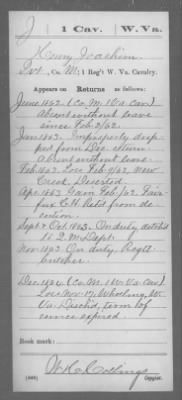 J | 1 Cav. | W. Va.
Henry Joachim
Pvt., Co. M, 1 Reg't W. Va. Cavalry.
Appears on Returns as follows:
June 1862 (Co. M. 1 Va. Cav)
Absent without leave
since Feb. 9/62.
Jan. 1863. Improperly drop-
ped from Dec. return.
Absent without leave.
Feb. 1863 Loss Feb. 9/62, New
Creek, Deserted.
Apr. 1863 Gain Feb. /62. Fair
fax C.H. Retd from de-
sertion.
Sept. & Oct. 1863. On duty, detch'd
to Q.M. Dept.
Nov. 1863 On duty, Regtl
butcher.
Dec. 1864 (Co. M, 1 W. Va. Cav)
Loss Nov. 17, Wheeling, W.
Va. Disch'd, term of
service expired.
Book mark:
Collings
Copyist.